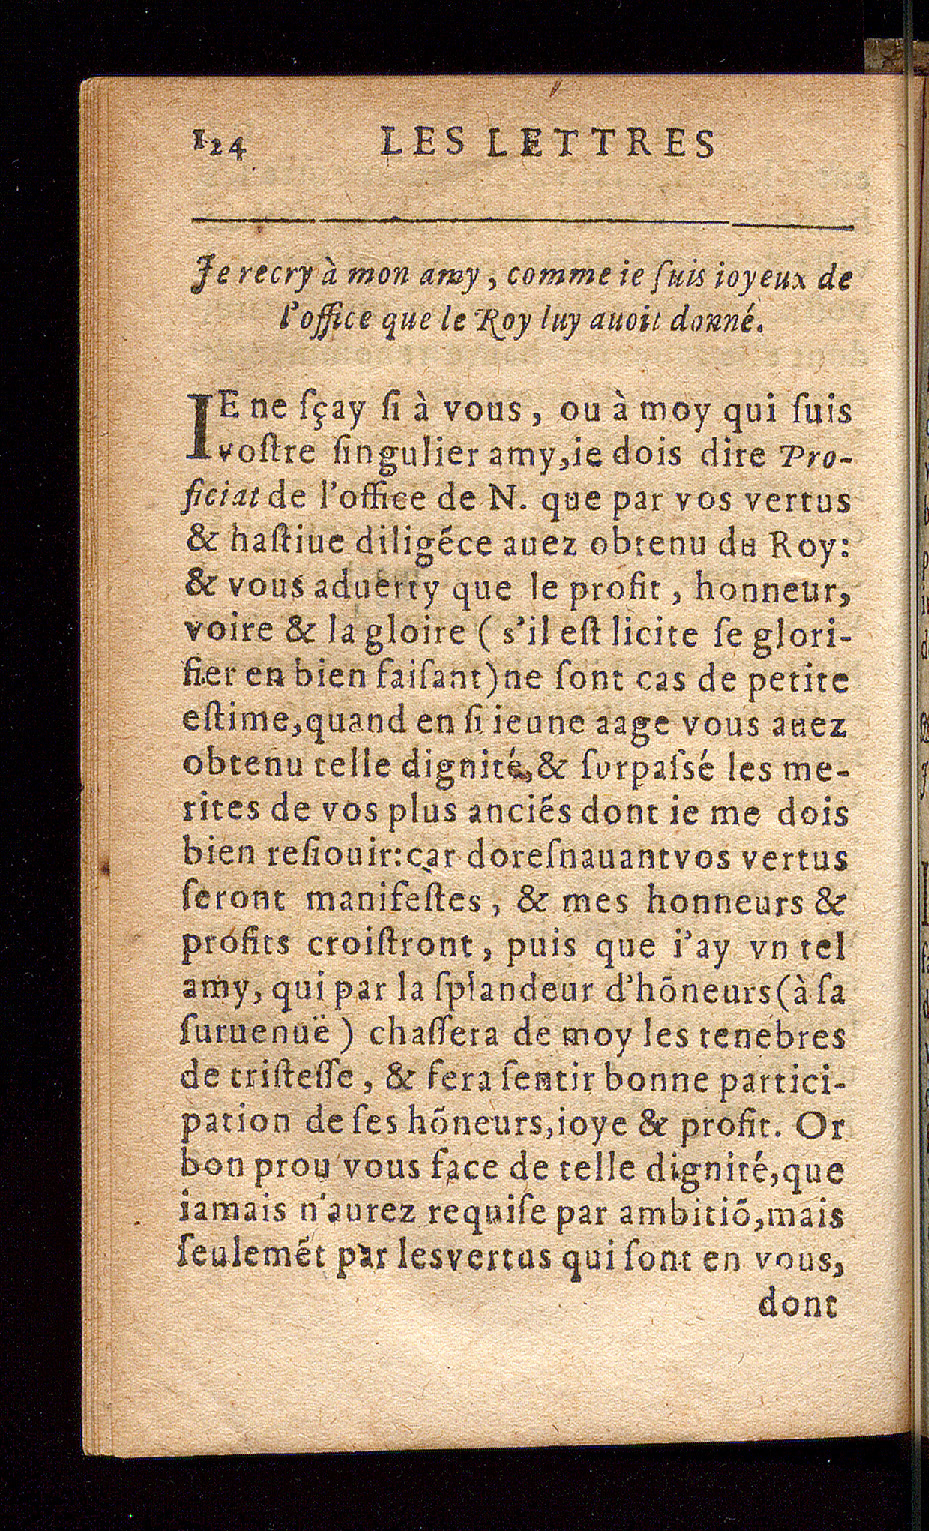 124 LES LETTRES
Je recry à mon amy, comme ie ſuis ioyeux de
l'office que le Roy luy auoit donné.
IE ne ſçay ſi à vous, ou à moy qui ſuis
voſtre ſingulier amy, ie dois dire Pro-
ficiat de l'office de N. que par vos vertus
& haſtiue diligẽce auez obtenu du Roy:
& vous aduerty que le profit, honneur,
voire & la gloire (s'il eſt licite ſe glori-
fier en bien faiſant) ne ſont cas de petite
eſtime, quand en ſi ieune aage vous auez
obtenu telle dignité, & ſurpaſsé les me-
rites de vos plus anciẽs dont ie me dois
bien reſiouir: car doreſnauant vos vertus
ſeront manifeſtes, & mes honneurs &
profits croiſtront, puis que i'ay vn tel
amy, qui par la ſplandeur d'hõneurs (à ſa
ſuruenuë) chaſſera de moy les tenebres
de triſteſſe, & fera ſentir bonne partici-
pation de ſes hõneurs, ioye & profit. Or
bon prou vous face de telle dignité, que
iamais n'aurez requiſe par ambitiõ, mais
ſeulemẽt par les vertus qui ſont en vous,
dont